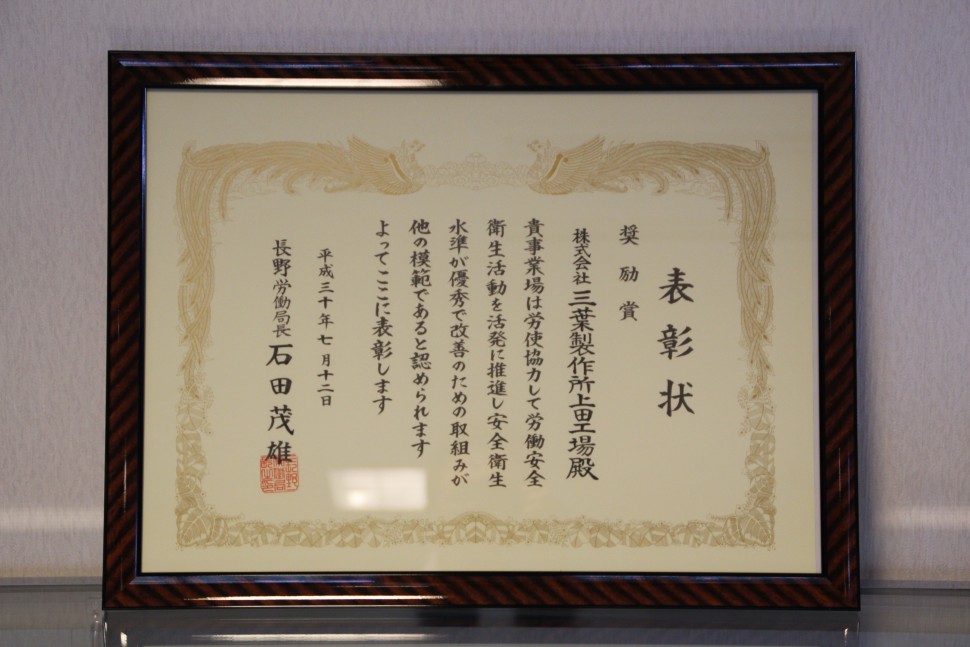 表彰状
奨励賞
株式会社三葉製作所上田工場殿
貴事業場は労使協力して労働安全
衛生活動を活発に推進し安全衛生
水準が優秀で改善のための取組みが
他の模範であると認められます
よってここに表彰します
平成三十年七月十二日
長野労働局長石田茂雄